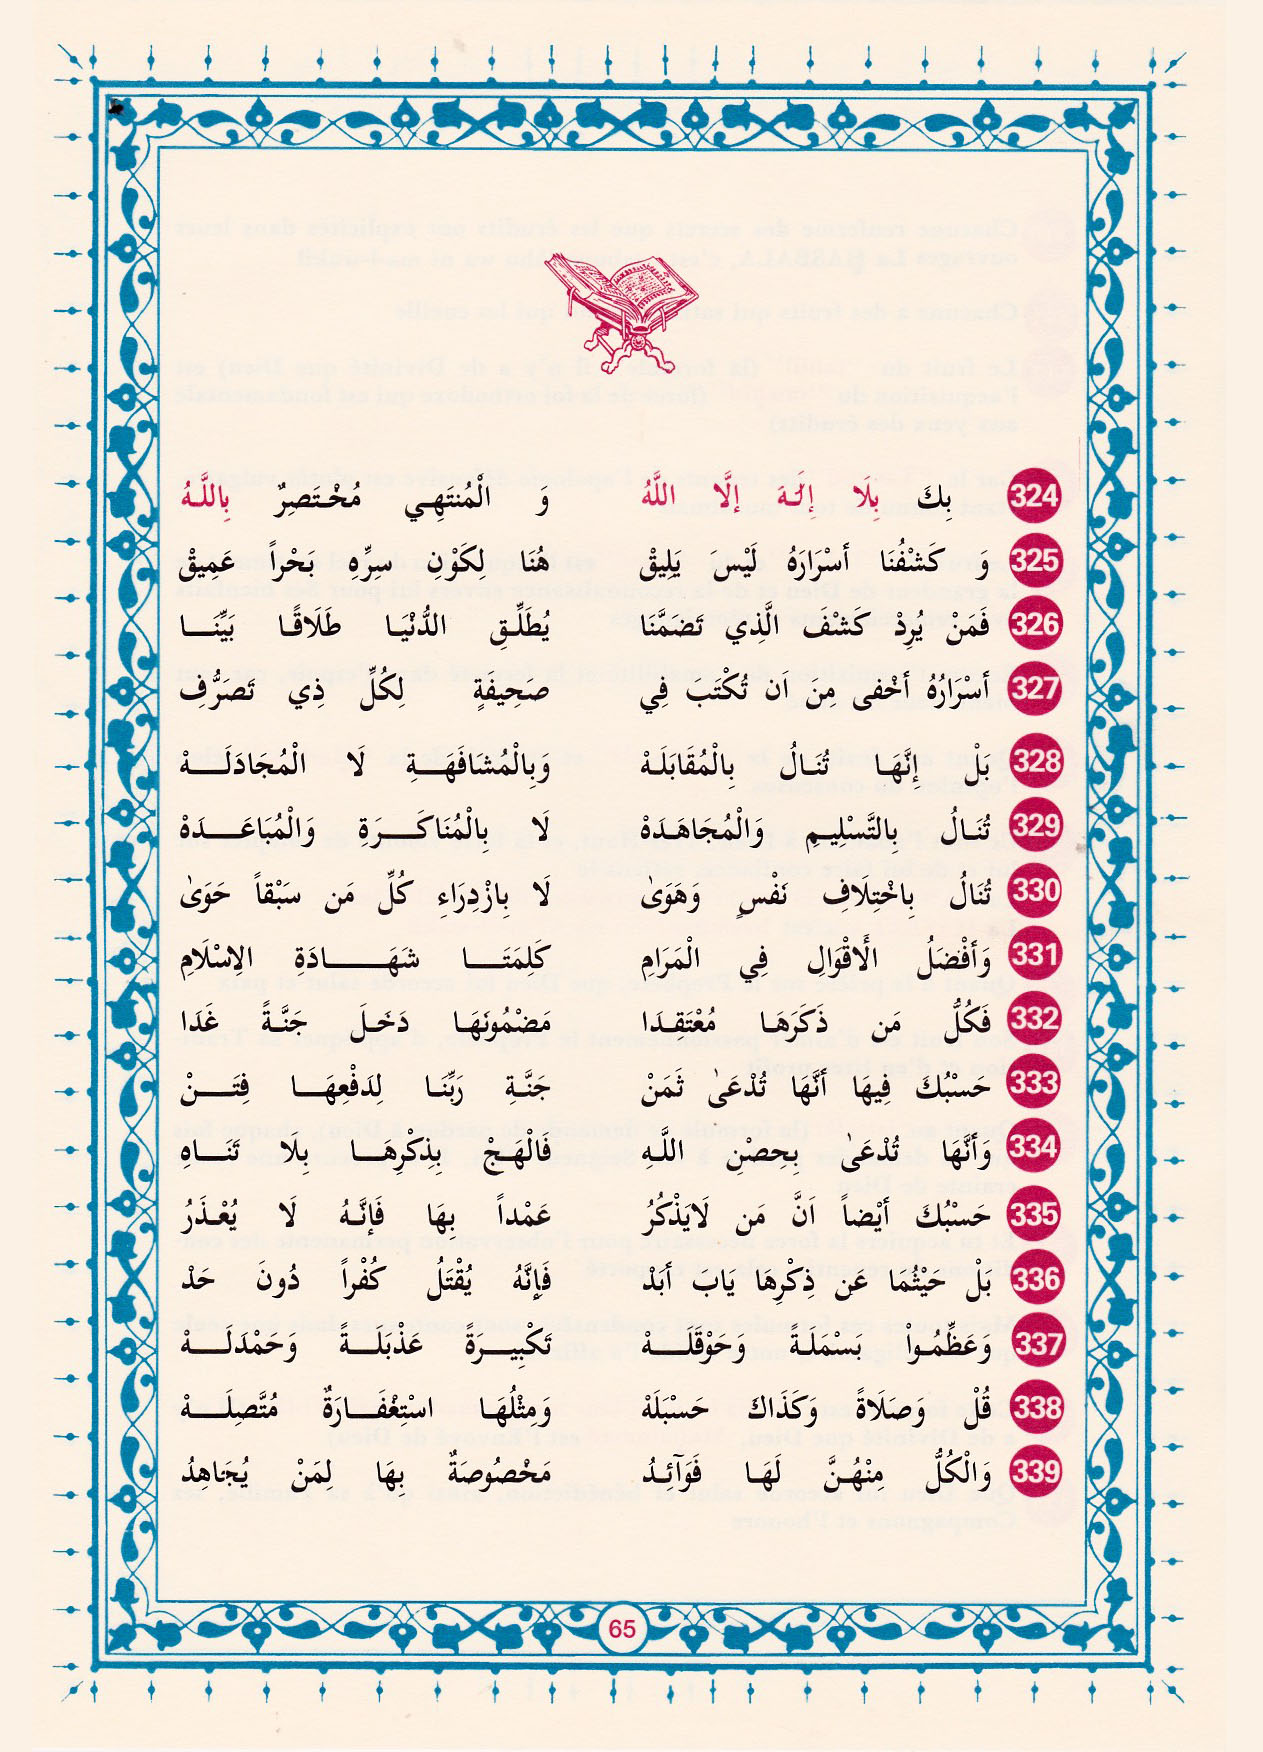 324 بِكَ بِلا إِلَهَ إلَّا اللَّهُ وَ الْمُنتهِي مُخْتَصِرٌ بِاللَّهُ
325 وَ كَشْفُنَا أسْرَارَهُ لَيْسَ يَلِيقْ هُنَا لِكَوْنِ سِرِّهِ بَحْراً عَمِيقْ
326 فَمَنْ يُرِدْ كَشْفَ الَّذِي تَضَمَّنَا يُطَلِّقِ الدُّنْيَا طَلَاقًا بَيِّنَا
327 أسْرَارُهُ أخْفَى مِنَ ان تُكْتَبَ فِي صَحِيفَةٍ لِكُلِّ ذِي تَصَرُّفِ
328 بَلْ إِنَّهَا تُنَالُ بِالْمُقَابَلَهْ وَبِالْمُشَافَهَةِ لَا الْمُجَادَلَهْ
329 تُنَالُ بِالتَّسْلِيمِ وَالْمُجَاهَدَهْ لَا بِالْمُنَاكَرَةِ وَالْمُبَاعَدَهْ
330 تُنَالُ بِاخْتِلافِ نَفْسٍ وَهَوَىٰ لَا بِازْدِرَاءِ كُلِّ مَن سَبْقاً حَوَىٰ
331 وَأفْضَلُ الْأَقْوَالِ فِي الْمَرَامِ كَلِمَتَا شَهَادَةِ الِاسْلَامِ
332 فَكُلُّ مَن ذَكَرَهَا مُعْتَقِدَا مَضْمُونَهَا دَخَلَ جَنَّةً غَدَا
333 حَسْبُكَ فِيهَا أنَّهَا تُدْعَىٰ ثَمَنْ جَنَّةِ رَبِّنَا لِدَفْعِهَا فِتَنْ
334 وَأنَّهَا تُدْعَىٰ بِحِصْنِ اللَّهِ فَالْهَجْ بِذِكْرِهَا بِلَا تَنَاهِ
335 حَسْبُكَ أيْضاً انَّ مَن لَايَذْكُرُ عَمْداً بِهَا فَإِنَّهُ لَا يُعْذَرُ
336 بَلْ حَيْثُمَا عَن ذِكْرِهَا يَابَ أبَدْ فَإِنَّهُ يُقْتَلُ كُفْراً دُونَ حَدْ
337 وَعَظِّمُواْ بَسْمَلَةً وَحَوْقَلَهْ تَكْبِيرَةً عَذْبَلَةً وَحَمْدَلَهْ
338 قُلْ وَصَلَاةً وَكَذَاكَ حَسْبَلَهْ وَمِثْلُهَا اسْتِغْفَارَةٌ مُتَّصِلَهْ
339 وَالْكُلُّ مِنْهُنَّ لَهَا فَوَآئِدُ مَخْصُوصَةٌ بِهَا لِمَنْ يُجَاهِدُ
65